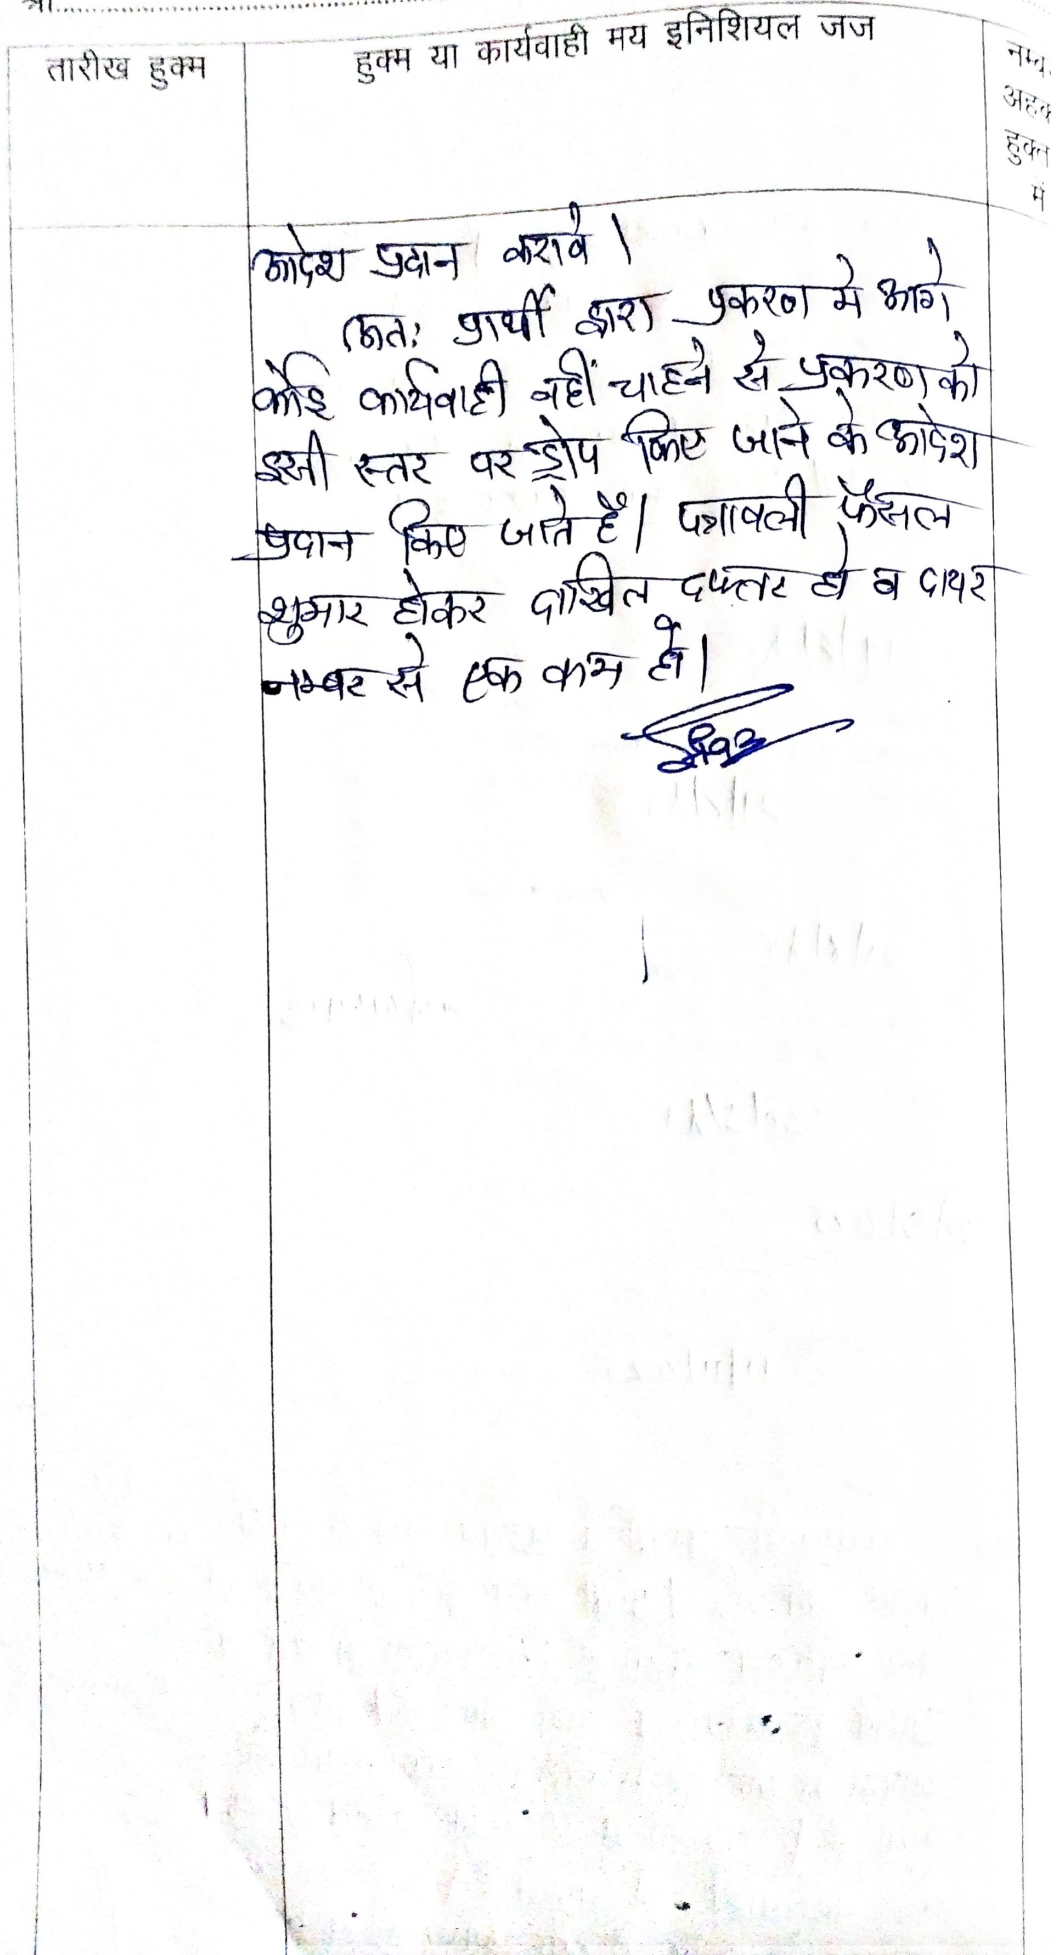 तारीख हुक्म
हुक्म या कार्यवाही मय इनिशियल जज
हुक्म
में
आदेश प्रदान करावे ।
अतः प्रार्थी द्वारा प्रकरण मे आगे
कोई कार्यवाही नहीं चाहने से प्रकरण को
इसी स्तर पर ड्रोप किए जाने के आदेश
प्रदान किए जाते हैं। पत्रावली फैसल
शुमार होकर दाखिल दफ्तर हो व दायर
नम्बर से एक कम हो।